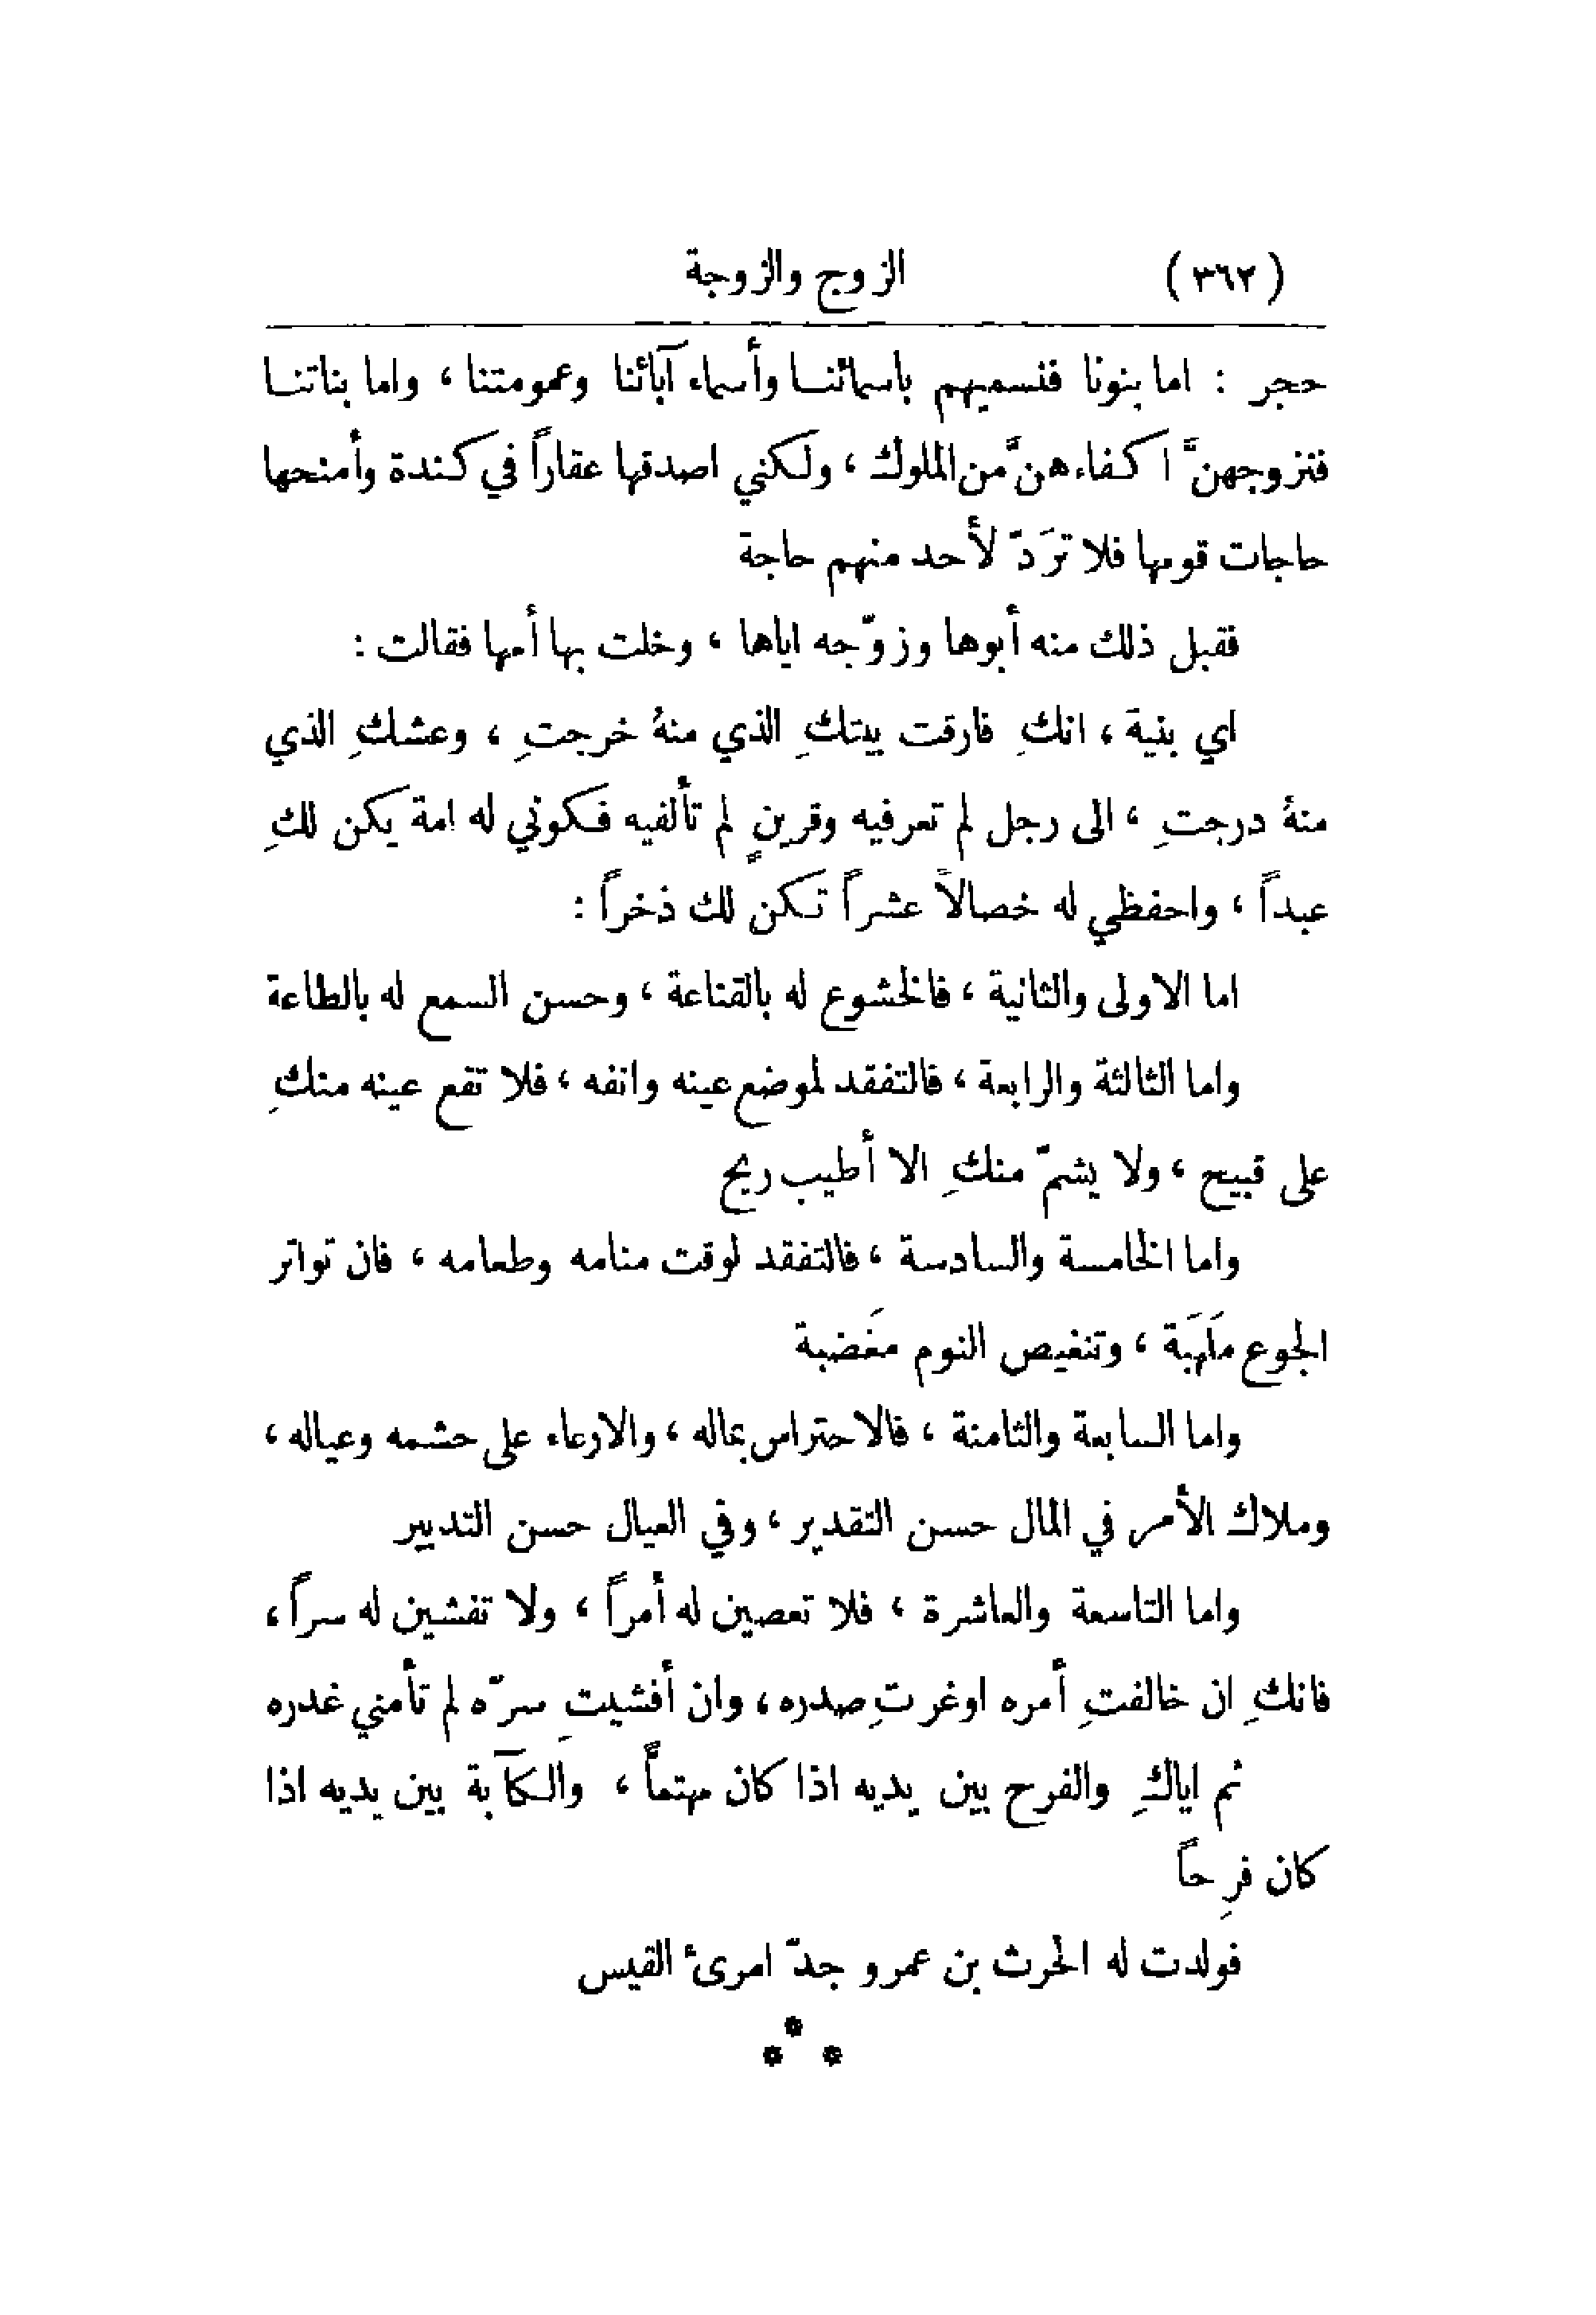 (٣٦٢) الزوج والزوجة
حجر : اما بنونا فنسميهم باسمائنا وأسماء آبائنا وعمومتنا ، واما بناتنا
فنزوجهنَّ اكفاءهنَّ من الملوك ، ولكني اصدقها عقاراً في كندة وأمنحها
حاجات قومها فلا ترَدّ لأحد منهم حاجة
فقبل ذلك منه أبوها وزوّجه اياها ، وخلت بها أمها فقالت :
اي بنية ، انكِ فارقت بيتكِ الذي منهُ خرجتِ ، وعشكِ الذي
منهُ درجتِ ، الى رجل لم تعرفيه وقرينٍ لم تألفيه فكوني له امة يكن لكِ
عبداً ، واحفظي له خصالاً عشراً تكن لك ذخراً :
اما الاولى والثانية ، فالخشوع له بالقناعة ، وحسن السمع له بالطاعة
واما الثالثة والرابعة ، فالتفقد لموضع عينه وانفه ، فلا تقع عينه منكِ
على قبيح ، ولا يشمّ منكِ الا أطيب ريح
واما الخامسة والسادسة ، فالتفقد لوقت منامه وطعامه ، فان تواتر
الجوع مَلهَبة ، وتنغيص النوم مغَضبة
واما السابعة والثامنة ، فالاحتراس بماله ، والارعاء على حشمه وعياله ،
وملاك الأمر في المال حسن التقدير ، وفي العيال حسن التدبير
واما التاسعة والعاشرة ، فلا تعصين له أمراً ، ولا تفشين له سراً ،
فانكِ ان خالفتِ أمره اوغرتِ صدره ، وان أفشيتِ سرّه لم تأمني غدره
ثم اياكِ والفرح بين يديه اذا كان مهتماً ، والكآبة بين يديه اذا
كان فرِحاً
فولدت له الحرث بن عمرو جدّ امرئ القيس
* * *